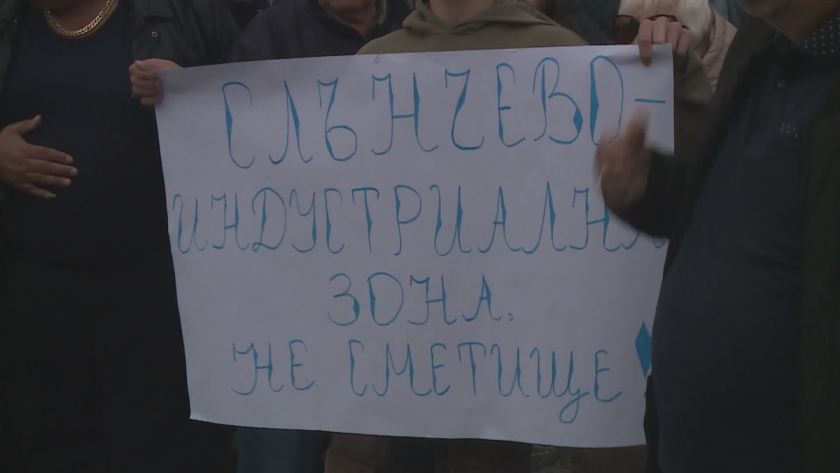 СЛЪНЧЕВО-
ИНДУСТРИАЛНА
ЗОНА,
НЕ СМЕТИЩЕ!